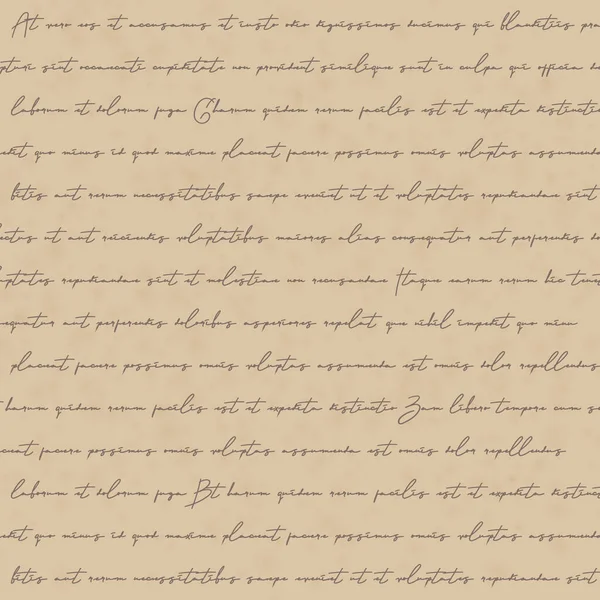 At vero eos et accusamus et iusto odio dignissimos ducimus qui blanditiis pra
pturi sint occaecati cupiditate non provident similique sunt in culpa qui officia de
laborum et dolorum fuga Gharum quidem rerum facilis est et expedita distinctio
edit quo minus id quod maxime placeat facere possimus omnis voluptas assumenda
bitis aut rerum necessitatibus saepe eveniet ut et voluptates repudiandae sint
ectus ut aut reiciendis voluptatibus maiores alias consequatur aut perferendis do
uptates repudiandae sint et molestiae non recusandae Itaque earum rerum hic tene
equatur aut perferendis doloribus asperiores repelat que nihil impedit quo minu
placeat facere possimus omnis voluptas assumenda est omnis dolor repellendus
harum quidem rerum facilis est et expedita distinctio Zam libero tempore cum so
ceat facere possimus omnis voluptas assumenda est omnis dolor repellendus
laborum et dolorum fuga Bt harum quidem rerum facilis est et expedita distinc
edit quo minus id quod maxime placeat facere possimus omnis voluptas assumenda
bitis aut rerum necessitatibus saepe eveniet ut et voluptates repudiandae sint